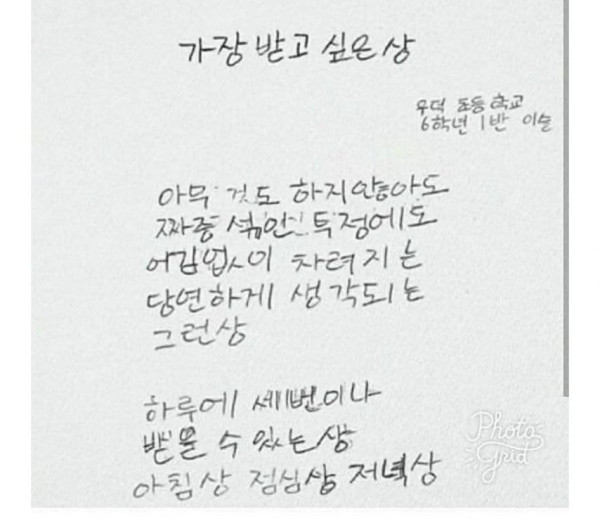 가장 받고 싶은 상
우덕 초등 학교
6학년 1반 이슬
아무 것도 하지않아도
짜증 섞인 투정에도
어김없이 차려지는
당연하게 생각되는
그런상
하루에 세번이나
받을 수 있는상
아침상 점심상 저녁상
Photo
Grid